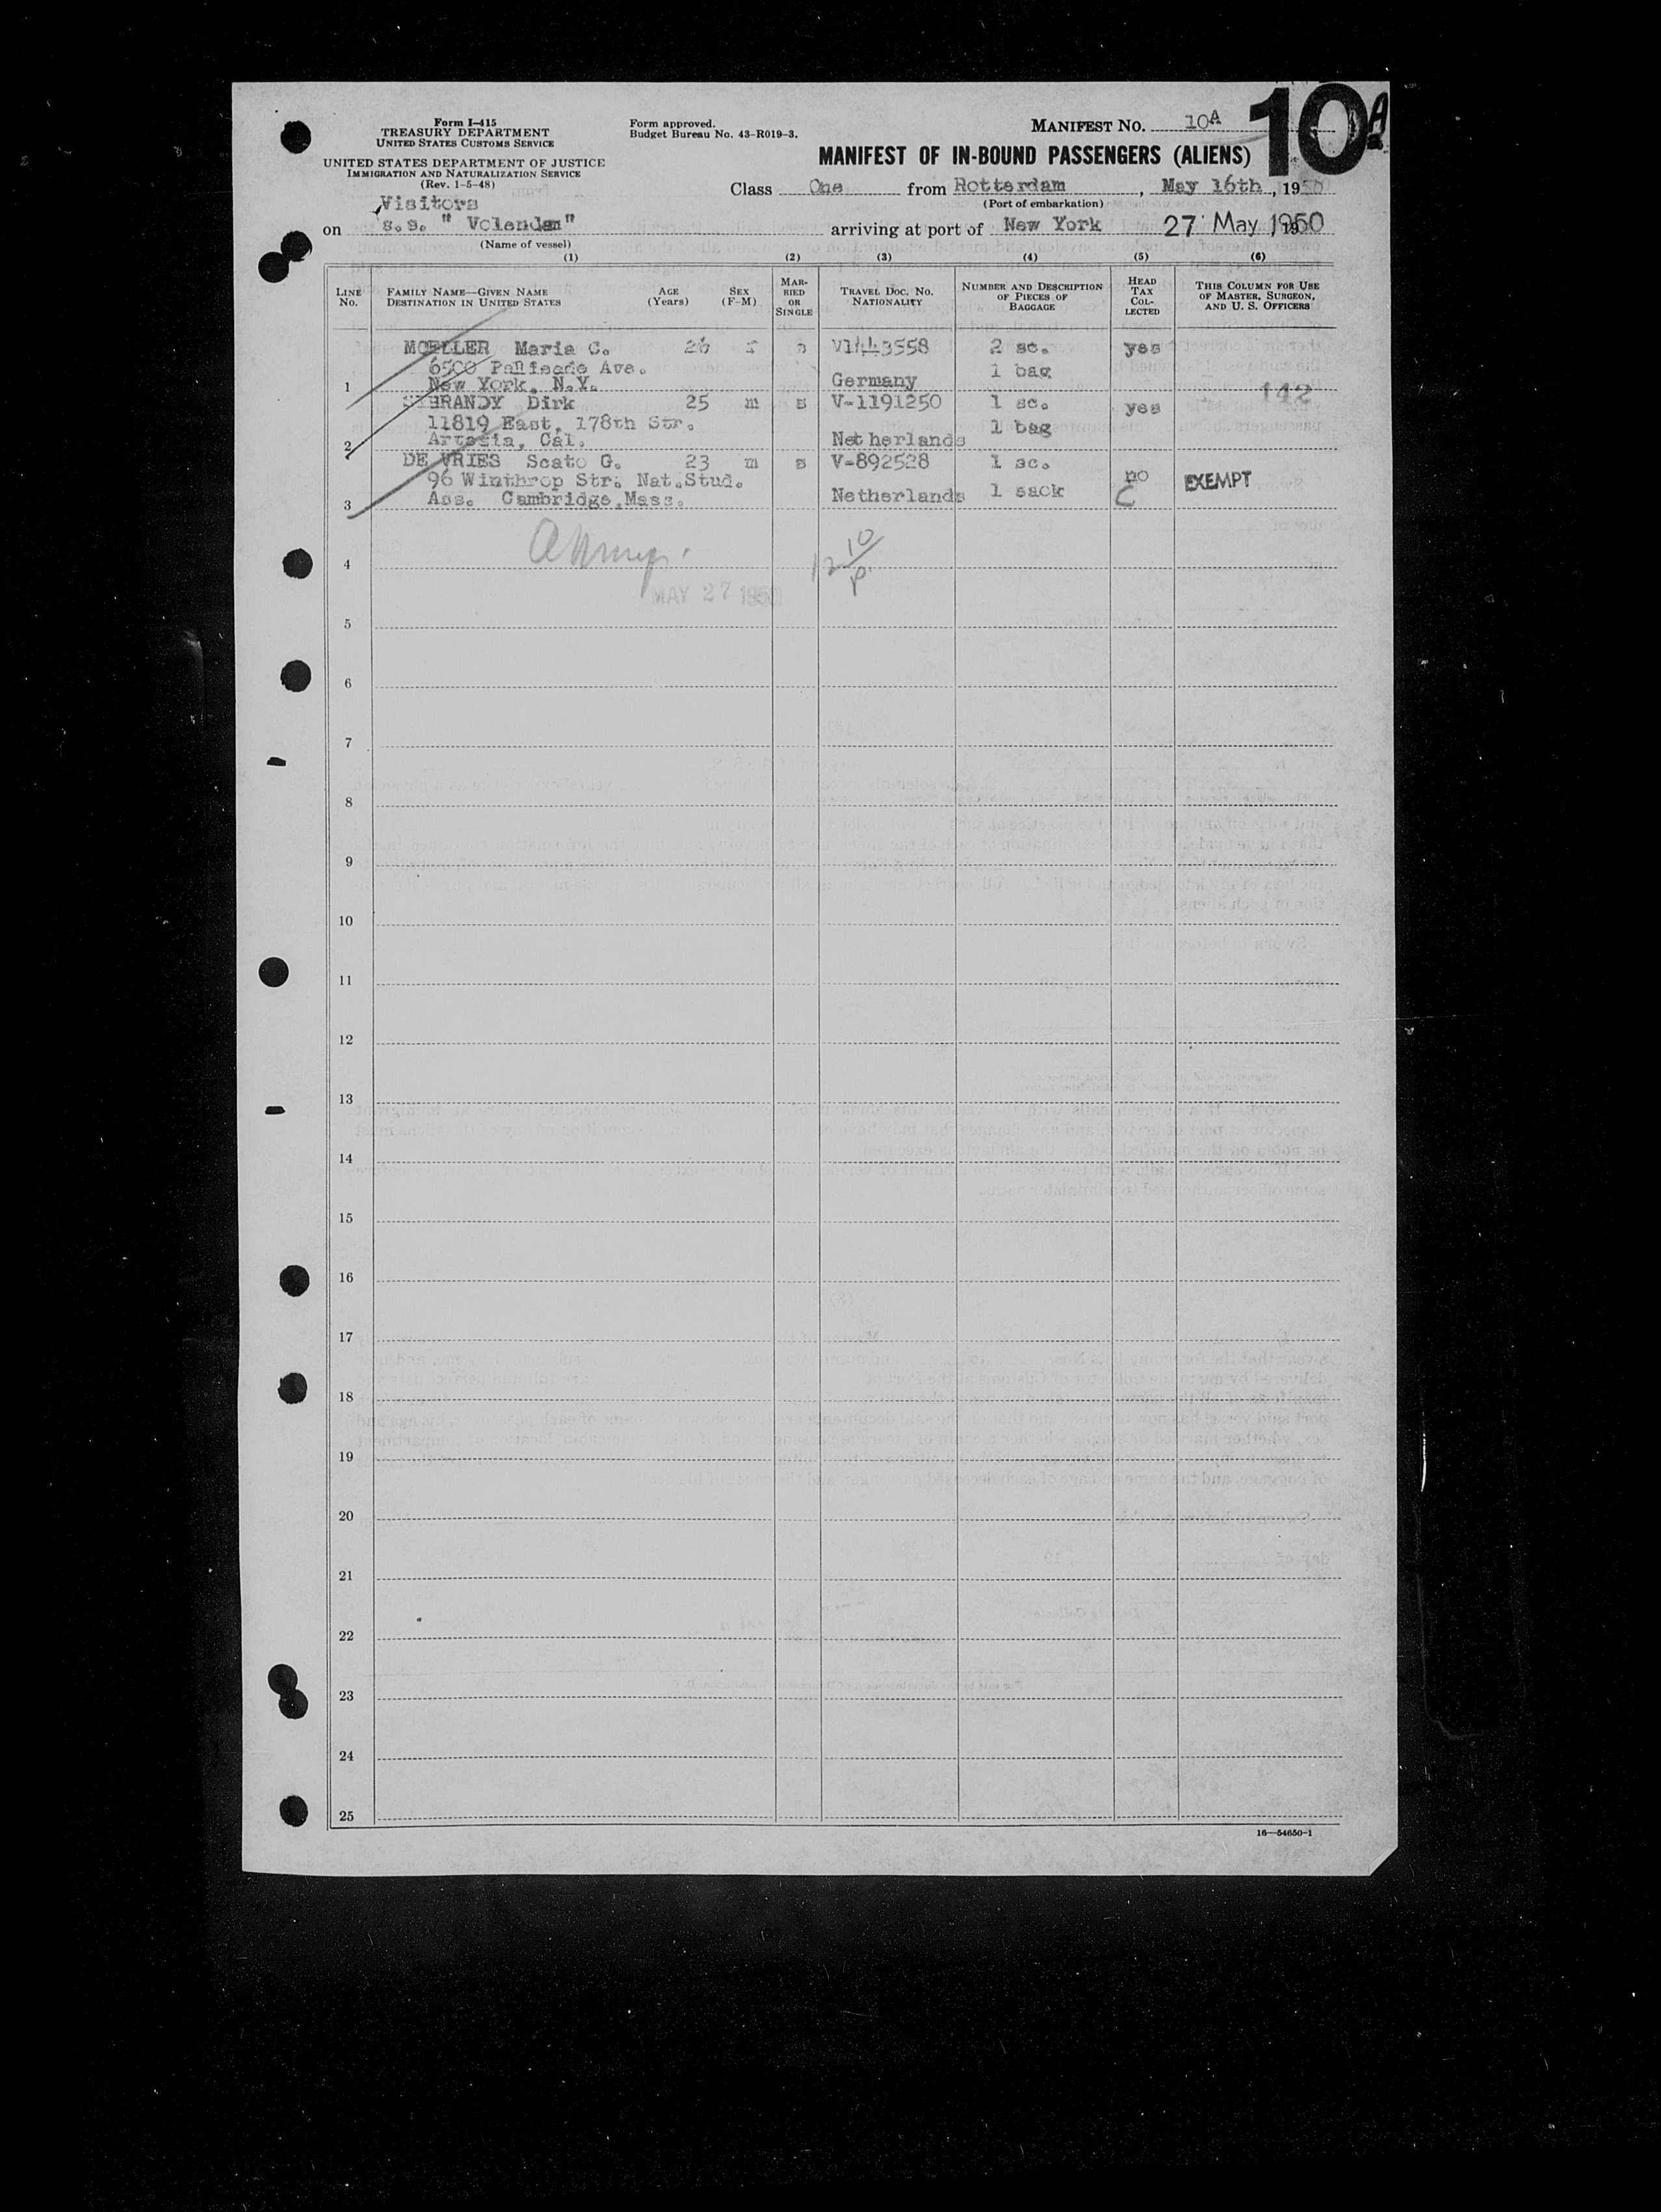 Form I-415
TREASURY DEPARTMENT
UNITED STATES CUSTOMS SERVICE
UNITED STATES DEPARTMENT OF JUSTICE
IMMIGRATION AND NATURALIZATION SERVICE
(Rev. 1-5-48)
Form approved.
Budget Bureau No. 43-R019-3.
MANIFEST NO. 10A
10A
MANIFEST OF IN-BOUND PASSENGERS (ALIENS)
Class One from Rotterdam, May 16th, 1950
(Port of embarkation)
Visitors
on s.s. "Volendam" arriving at port of New York 27 May 1950
(Name of vessel)
(1) (2) (3) (4) (5) (6)
LINE No. FAMILY NAME—GIVEN NAME DESTINATION IN UNITED STATES AGE (Years) SEX (F-M) MARRIED OR SINGLE TRAVEL DOC. NO. NATIONALITY NUMBER AND DESCRIPTION OF PIECES OF BAGGAGE HEAD TAX COLLECTED THIS COLUMN FOR USE OF MASTER, SURGEON, AND U. S. OFFICERS
MOELLER Maria C. 26 f s V1443558 2 sc. yes
6500 Palisade Ave. 1 bag
1 New York, N.Y. Germany 142
SYBRANDY Dirk 25 m s V-1191250 1 sc. yes
11819 East, 178th Str. 1 bag
2 Artesia, Cal. Netherlands
DE VRIES Scato G. 23 m s V-892528 1 sc. no
96 Winthrop Str. Nat.Stud. C EXEMPT
3 Ass. Cambridge,Mass. Netherlands 1 sack
4
MAY 27 1950
5
6
7
8
9
10
11
12
13
14
15
16
17
18
19
20
21
22
23
24
25
16—54650-1